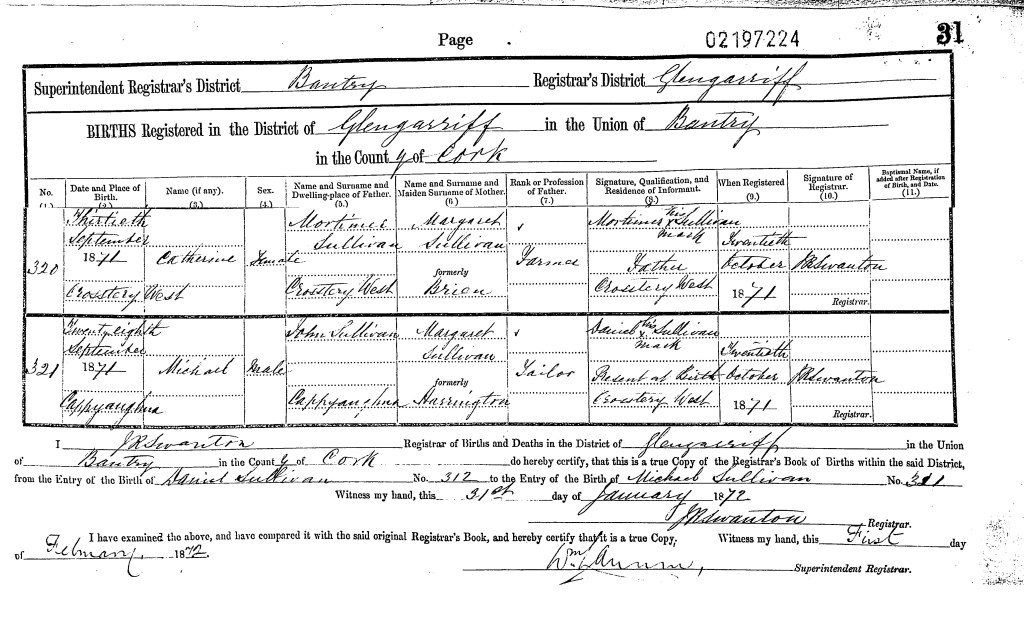 Page . 02197224 31
Superintendent Registrar's District Bantry Registrar's District Glengarriff
BIRTHS Registered in the District of Glengarriff in the Union of Bantry
in the County of Cork
No. (1.) Date and Place of Birth. (2.) Name (if any). (3.) Sex. (4.) Name and Surname and Dwelling-place of Father. (5.) Name and Surname and Maiden Surname of Mother. (6) Rank or Profession of Father. (7.) Signature, Qualification, and Residence of Informant. (8.) When Registered (9.) Signature of Registrar. (10.) Baptismal Name, if added after Registration of Birth, and Date. (11.)
Thirtieth Mortimer Margaret Mortimer his x Sullivan
September Sullivan Sullivan mark Twentieth
320 1871 Catherine Female formerly Farmer Father October JRSwanton
Crosstery West Crosstery West Brien Crosstery West 1871 Registrar.
Twenty eighth John Sullivan Margaret Daniel his x Sullivan
September Sullivan mark Twentieth
321 1871 Michael Male formerly Tailor Present at Birth October JRSwanton
Cappyaughna Cappyaughna Harrington Crosstery West 1871 Registrar.
I JRSwanton Registrar of Births and Deaths in the District of Glengarriff in the Union
of Bantry in the County of Cork do hereby certify, that this is a true Copy of the Registrar's Book of Births within the said District,
from the Entry of the Birth of Daniel Sullivan No. 312 to the Entry of the Birth of Michael Sullivan No. 321
Witness my hand, this 31st day of January 1872
JRSwanton Registrar.
I have examined the above, and have compared it with the said original Registrar's Book, and hereby certify that it is a true Copy, Witness my hand, this First day
of February 1872.
Wm Superintendent Registrar.